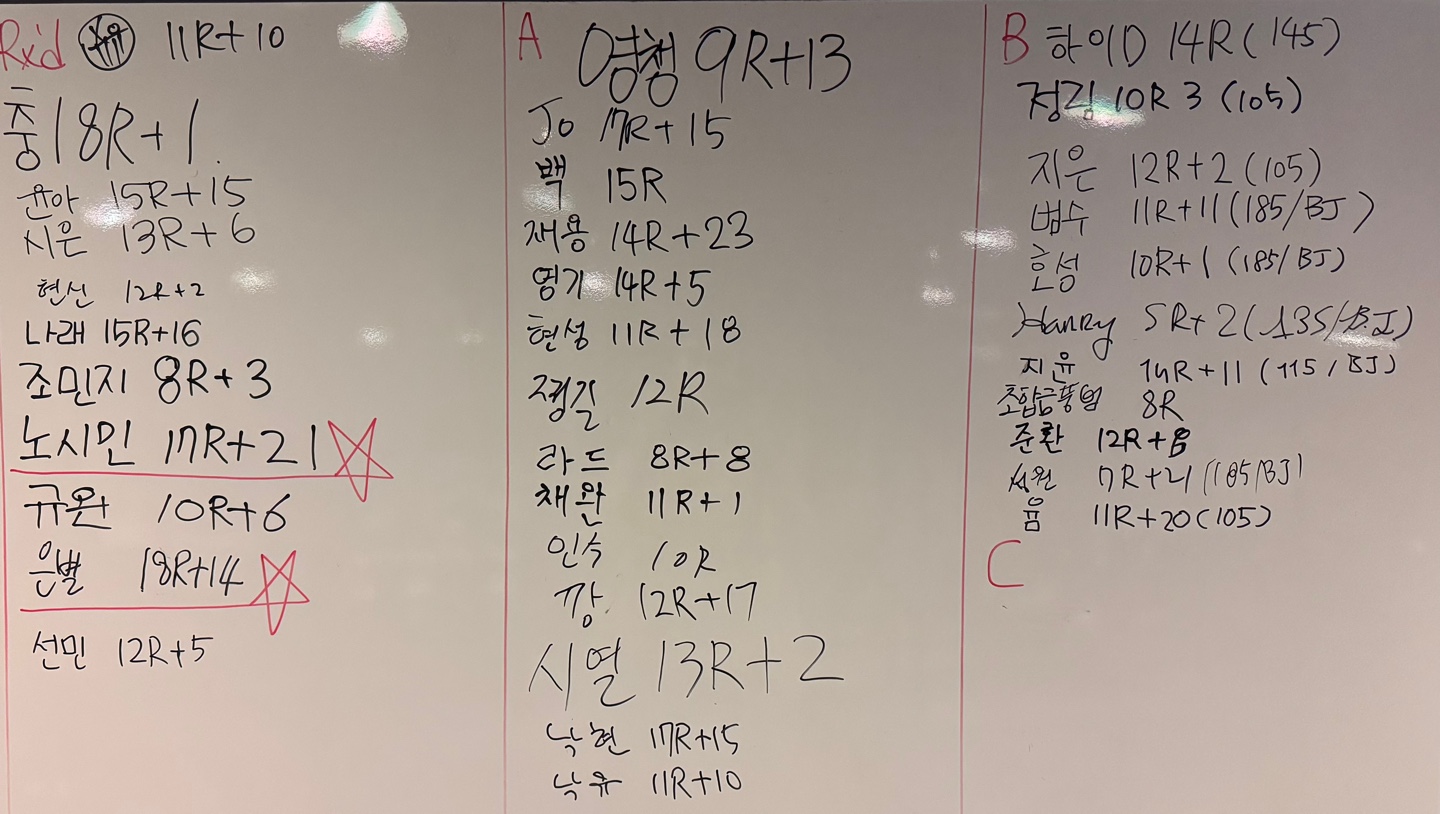 Rx'd 11R+10
충 18R+1
윤아 15R+15
시은 13R+6
현신 12R+2
나래 15R+16
조민지 8R+3
노시민 17R+21
규완 10R+6
은별 18R+14
선민 12R+5
A 영챙 9R+13
Jo 17R+15
백 15R
재용 14R+23
영기 14R+5
현성 11R+18
정길 12R
라드 8R+8
채완 11R+1
인수 10R
깡 12R+17
시열 13R+2
낙현 17R+15
낙유 11R+10
B 하이D 14R(145)
정김 10R 3 (105)
지은 12R+2(105)
범수 11R+11(185/BJ)
호성 10R+1(185/BJ)
Hanry 5R+2(135/B.J)
지윤 14R+11(115/BJ)
조합금풍범 8R
준환 12R+8
서원 7R+21(185/BJ)
윰 11R+20(105)
C